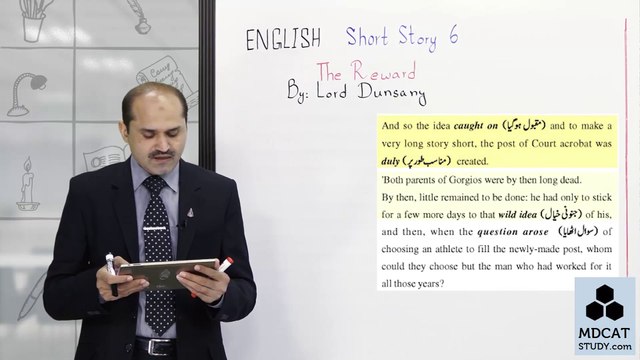 ENGLISH Short Story 6
The Reward
By: Lord Dunsany
And so the idea caught on (مقبول ہوگیا) and to make a
very long story short, the post of Court acrobat was
duly (مناسب طور پر) created.
'Both parents of Gorgios were by then long dead.
By then, little remained to be done: he had only to stick
for a few more days to that wild idea (جنونی خیال) of his,
and then, when the question arose (سوال اٹھایا) of
choosing an athlete to fill the newly-made post, whom
could they choose but the man who had worked for it
all those years?
MDCAT
STUDY.com